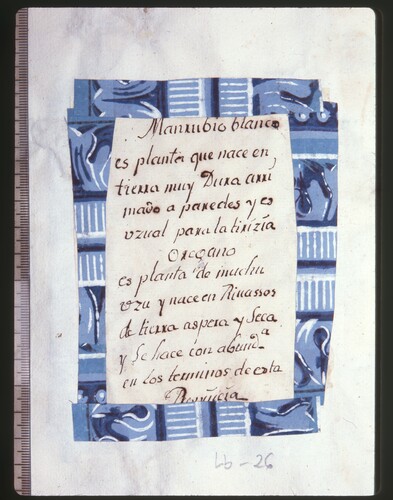 Marrubio blanco
es planta que nace en
tierra muy Dura arri
mado a paredes y es
vzual para la tirizia
Oregano
es planta de mucho
vzu y nace en Ribassos
de tierra aspera y Seca
y Se hace con abund.a
en los terminos de esta
Provincia
Lb-26